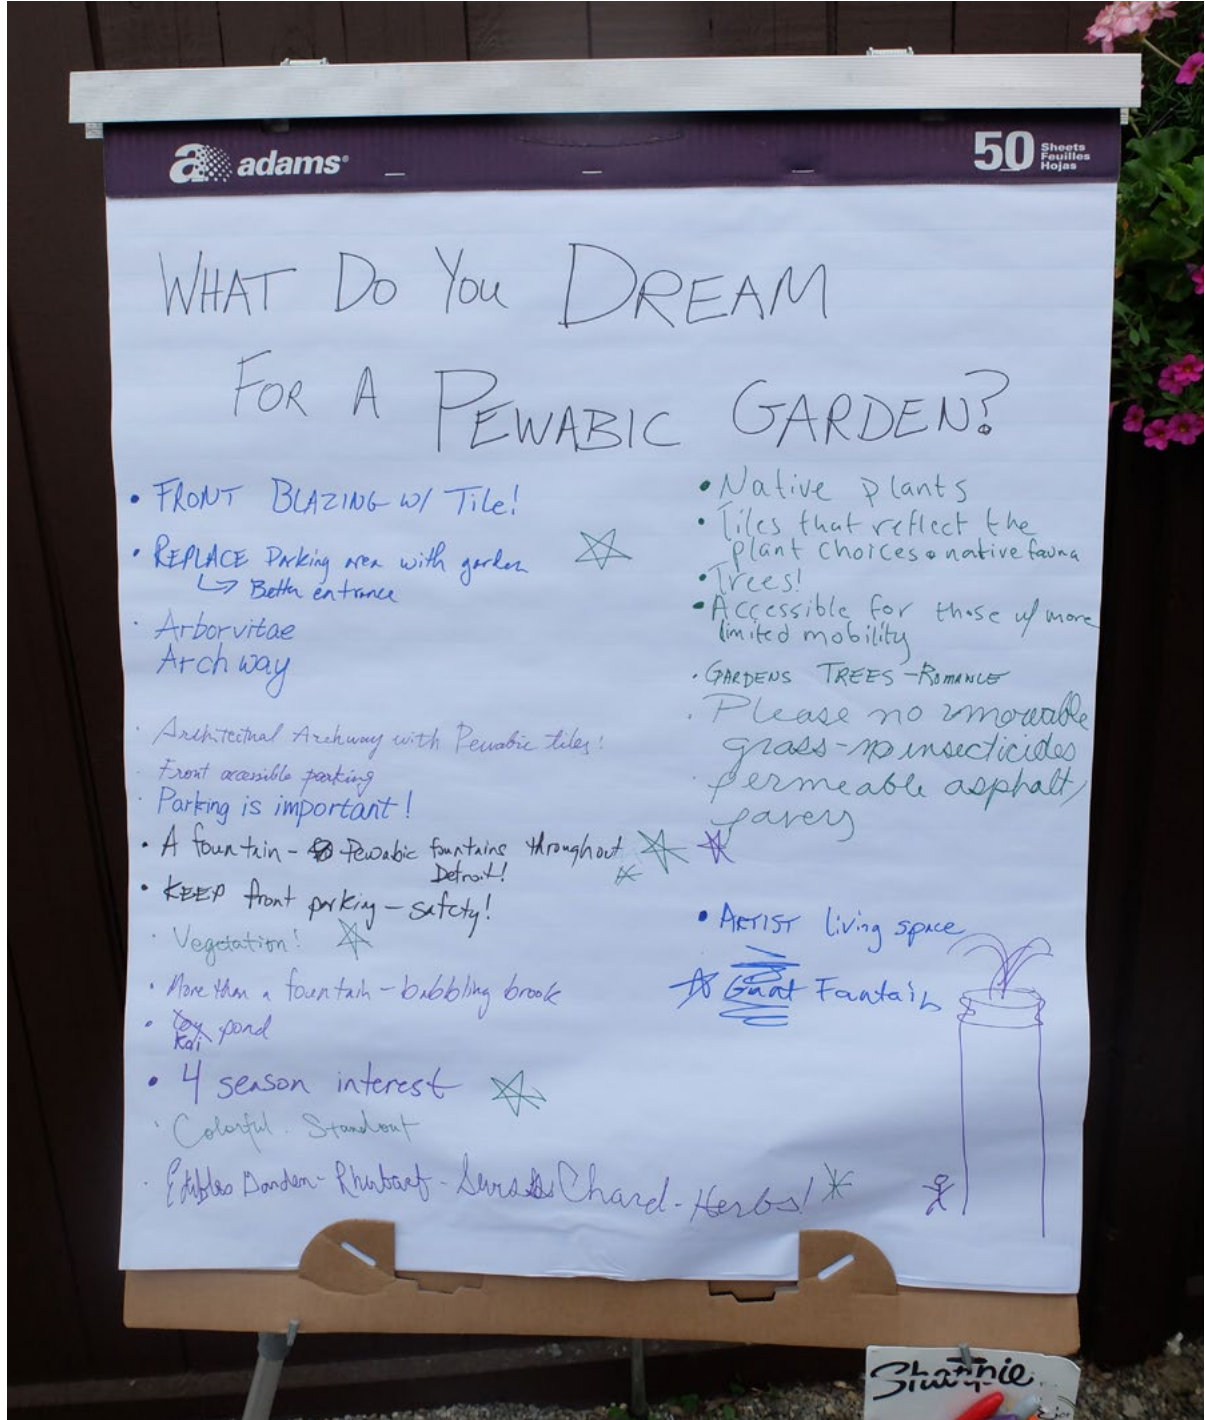 adams
50 Sheets
Feuilles
Hojas
WHAT DO YOU DREAM
FOR A PEWABIC GARDEN?
• FRONT BLAZING W/ Tile!
• REPLACE Parking area with garden
↳ Better entrance
· Arborvitae
Archway
· Architectual Archway with Pewabic tiles!
· Front accessible parking
· Parking is important!
• A fountain - Pewabic fountains throughout
Detroit!
• KEEP front parking - safety!
· Vegetation!
· More than a fountain - babbling brook
• Koi pond
• 4 season interest
· Colorful. Standout
· Edibles Garden - Rhubarb - Swiss Chard - Herbs!
• Native plants
• Tiles that reflect the
plant choices • native fauna
• Trees!
• Accessible for those w/ more
limited mobility
· GARDENS TREES - ROMANCE
· Please no mowable
grass - no insecticides
· permeable asphalt,
pavers
• ARTIST living space
Giant Fountain
Sharpie